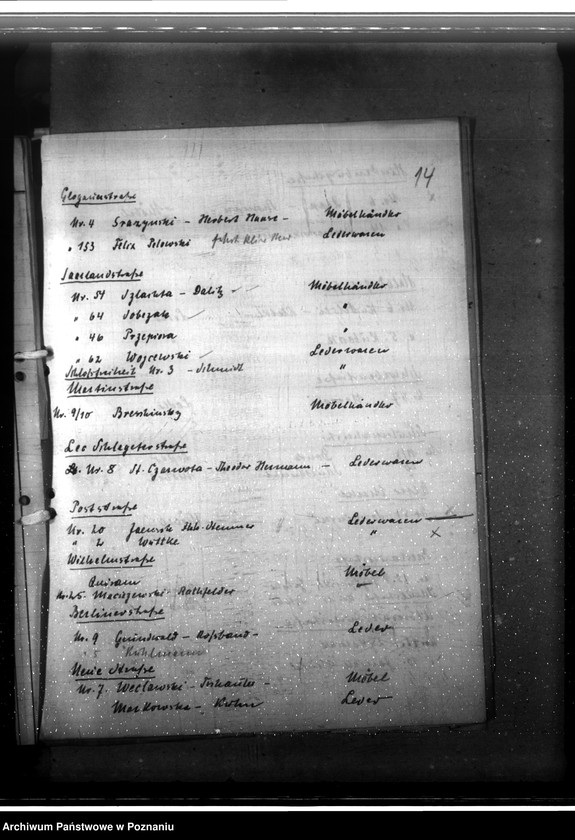 14
Glogauerstraße
Nr. 4 Grazynski - Herbert Haase - Möbelhändler
" 153 Felix Polowski Lederwaren
Saarlandstraße
Nr. 54 Szlachta - Dalitz Möbelhändler
" 64 Sobczak "
" 46 Przepiora "
" 62 Wojcewski Lederwaren
Schloßfreiheit Nr. 3 - Schmidt "
Martinstraße
Nr. 9/10 Möbelhändler
Leo Schlageterstraße
Nr. 8 St. Czarnota - Theodor Hermann - Lederwaren
Poststraße
Nr. 20 Lederwaren
" 2 Wuttke " x
Wilhelmstraße
Möbel
Nr. 25 Maciejewski - Rathfelder
Berlinerstraße
Nr. 9 Grünwald - Leder
" 5 Kuhlmann
Neue Straße
Nr. 7. Wecławski - Möbel
Markowska - Kuhn Leder
Archiwum Państwowe w Poznaniu